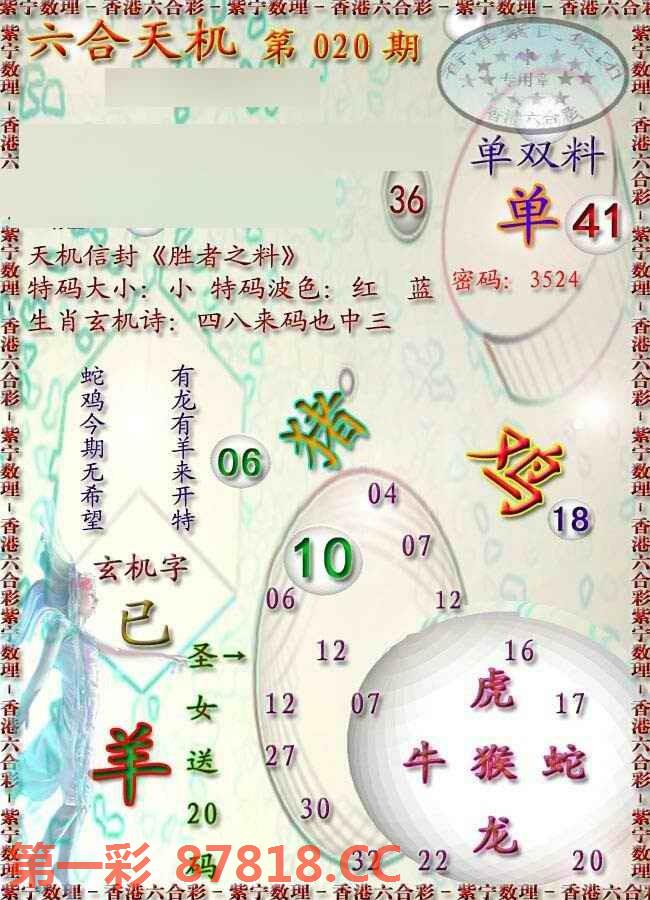 紫宁数理－香港六合彩－紫宁数理－香港六合彩－紫宁数理－香港六合彩
六合天机 第 020 期
专用章
香港六合彩
单双料
单 41
36
天机信封《胜者之料》
特码大小：小 特码波色：红 蓝
密码：3524
生肖玄机诗：四八来码也中三
有龙有羊来开特
蛇鸡今期无希望
猪
鸡
06
18
04
10
07
玄机字
已
06
12
圣→
12
16
女
12
07
虎
17
羊
送
27
牛 猴 蛇
20
30
龙
码
32
22
20
第一彩 87818.CC
紫宁数理－香港六合彩－紫宁数理－香港六合彩－紫宁数理－香港六合彩